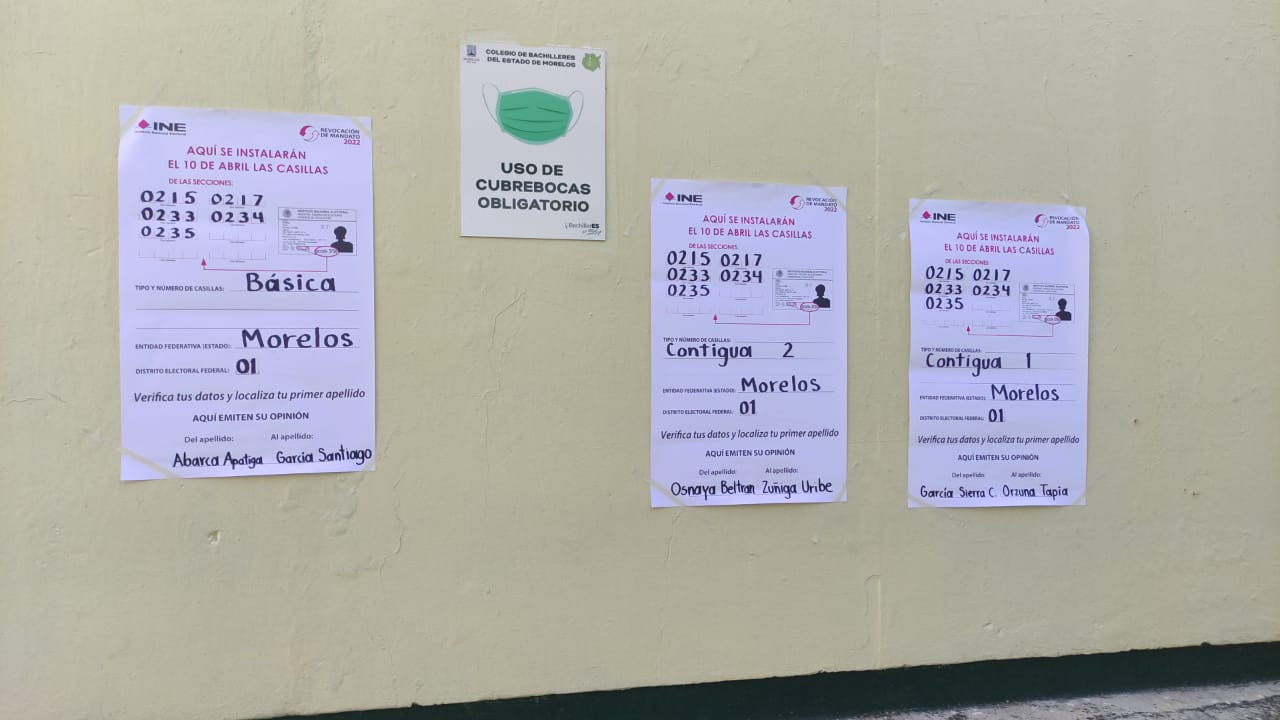 INE
Instituto Nacional Electoral
REVOCACIÓN
DE MANDATO
2022
AQUÍ SE INSTALARÁN
EL 10 DE ABRIL LAS CASILLAS
DE LAS SECCIONES:
0215 0217
0233 0234
0235
TIPO Y NÚMERO DE CASILLAS: Básica
ENTIDAD FEDERATIVA (ESTADO): Morelos
DISTRITO ELECTORAL FEDERAL: 01
Verifica tus datos y localiza tu primer apellido
AQUÍ EMITEN SU OPINIÓN
Del apellido: Al apellido:
Abarca Apatiga García Santiago
COLEGIO DE BACHILLERES
DEL ESTADO DE MORELOS
USO DE
CUBREBOCAS
OBLIGATORIO
BachillerES
INE
REVOCACIÓN
DE MANDATO
2022
AQUÍ SE INSTALARÁN
EL 10 DE ABRIL LAS CASILLAS
DE LAS SECCIONES:
0215 0217
0233 0234
0235
TIPO Y NÚMERO DE CASILLAS:
Contigua 2
ENTIDAD FEDERATIVA (ESTADO): Morelos
DISTRITO ELECTORAL FEDERAL: 01
Verifica tus datos y localiza tu primer apellido
AQUÍ EMITEN SU OPINIÓN
Del apellido: Al apellido:
Osnaya Beltran Zuñiga Uribe
INE
REVOCACIÓN
DE MANDATO
2022
AQUÍ SE INSTALARÁN
EL 10 DE ABRIL LAS CASILLAS
DE LAS SECCIONES:
0215 0217
0233 0234
0235
TIPO Y NÚMERO DE CASILLAS:
Contigua 1
ENTIDAD FEDERATIVA (ESTADO): Morelos
DISTRITO ELECTORAL FEDERAL: 01
Verifica tus datos y localiza tu primer apellido
AQUÍ EMITEN SU OPINIÓN
Del apellido: Al apellido:
García Sierra C. Orzuna Tapia